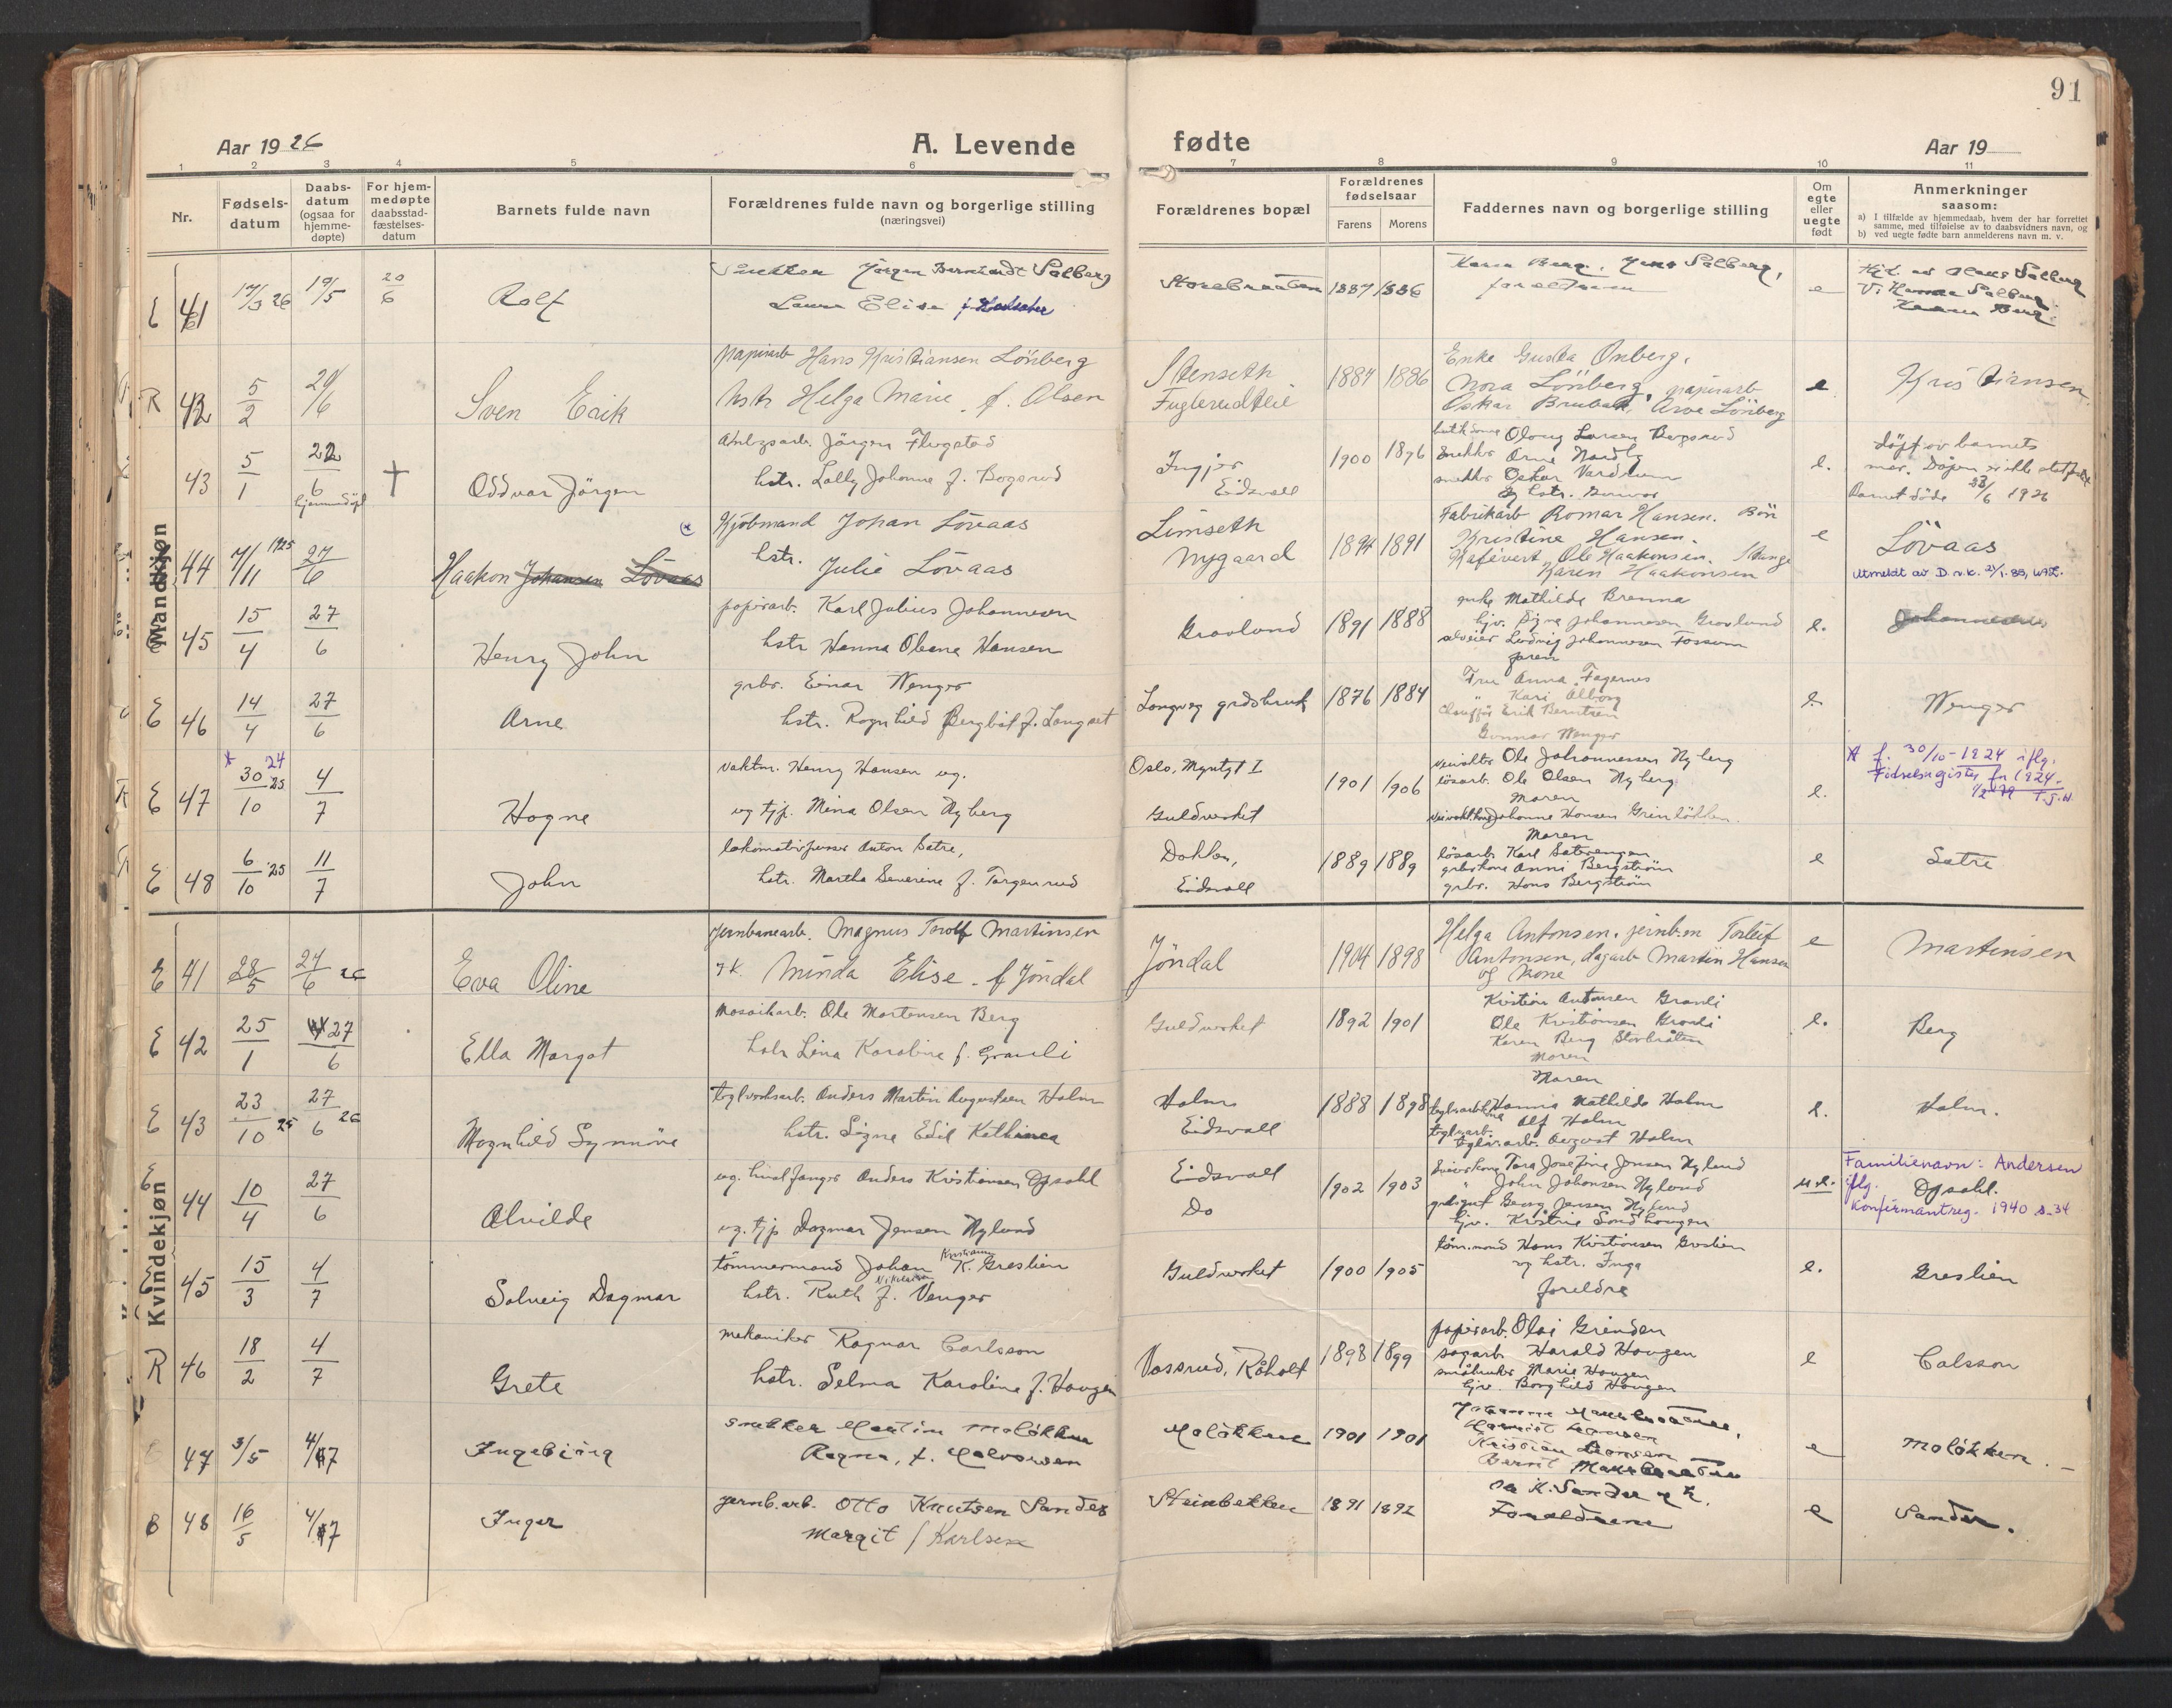 91
Aar 1926
A. Levende
fødte
Aar 19
1 2 3 4 5 6 7 8 9 10 11
Nr.
Fødsels-
datum
Daabs-
datum
(ogsaa for
hjemme-
døpte)
For hjem-
medøpte
daabsstad-
fæstelses-
datum
Barnets fulde navn
Forældrenes fulde navn og borgerlige stilling
(næringsvei)
Forældrenes bopæl
Forældrenes
fødselsaar
Farens Morens
Faddernes navn og borgerlige stilling
Om
egte
eller
uegte
født
Anmerkninger
saasom:
a) I tilfælde av hjemmedaab, hvem der har forrettet
samme, med tilføielse av to daabsvidners navn, og
b) ved uegte fødte barn anmelderens navn m. v.
Mandskjøn
E 41 17/3 26 19/5 20/6 Rolf
Snekker Jørgen Berntzendt Salberg
Laura Elise f.
Storebraaten 1887 1886
Karen Berg, Jens Salberg,
forældrene
e
Hjd. av Hans Salberg
V: Hanna Salberg
Karen Berg.
R 42 5/2 20/6 Sven Erik
papirarb Hans Kristiansen Lönberg
hstr Helga Marie f. Olsen
Stenseth
Fuglerudlie
1884 1886
Enke Gusta Onberg,
Nora Lönberg, papirarb
Oskar Brubak, Arve Lönberg
e
Kristiansen
43 5/1 22/6 hjemmedöpt † Oddvar Jörgen
Jörgen Flugstad
hstr. Lally Johanne f. Bogsrud
Ingjer
Eidsvoll
1900 1896
Oloug Larsen Bogsrud
snekker Arne Nordby
snekker Oskar Vardum
og hstr. Gunvor
e.
døpt av barnets
mor. Dåpen er ikke stadf.
Barnet døde 23/6 1926
44 7/11 1925 27/6 Haakon Johansen Lövaas
Kjöbmand Johan Lövaas
hstr. Julie Lövaas
Limseth
Nygaard
1894 1891
Fabrikarb Romar Hansen. Bön
Kristine Hansen.
Kafévert Ole Haakonsen, Stange
Karen Haakonsen
e
Lövaas
Utmeldt av D.n.k. 21/1.83, WAL.
45 15/4 27/6 Henry John
papirarb. Karl Julius Johannesen
hstr Hanna Oleana Hansen
Gravlund 1891 1888
enke Mathilde Brenna
hjv. Signe Johannesen Gravlund
selveier Ludvig Johannesen Fossum
faren
e.
Johannesen
E 46 14/4 27/6 Arne
grbr. Einar Wenger
hstr. Ragnhild Bergliot f. Langset
Langveg grdsbruk 1876 1884
Fru Anna Fagernes
" Kari Alborg
Chauffør Erik Berntsen
Gunnar Wenger
e.
Wenger
E 47 * 30/10 25 24 4/7 Hogne
vaktm. Henry Hansen ug.
ug tjp. Mina Olsen Nyberg
Oslo, Myntgt I
Guldverket
1901 1906
Ole Johannessen Nyberg
løsarb. Ole Olsen Nyberg
Moren
Johanne Hansen Grinlökken.
e.
* f. 30/10-1924 iflg.
Fødselsregister for 1924.
T.S.H.
E 48 6/10 25 11/7 John
lokomotivpusser Anton Sætre,
hstr. Martha Severine f. Torgenrud
Dokken,
Eidsvoll
1889 1889
Moren
løsarb Karl Sæterengen
grbrkone Anni Bergström
grbr. Hans Bergström
e
Sætre
Kvindekjøn
E 41 28/5 24/6 26 Eva Oline
jernbanearb. Magnus Torolf Martinsen
g.k. Minda Elise f Jöndal
Jöndal 1904 1898
Helga Antonsen, jernb.m Torleif
Antonsen, dagarb Martin Hansen
og kone
e
Martinsen
E 42 25/1 27/6 Ella Margot
mosaikarb. Ole Martensen Berg
hstr Lina Karoline f. Granli
Guldverket 1892 1901
Kristian Antonsen Granli
Ole Kristiansen Granli
Karen Berg Storbråten
Moren
e.
Berg
E 43 23/10 25 27/6 26 Magnhild Synnöve
teglverksarb. Anders Martin Augustsen Holm
hstr. Signe Edil Kathinca
Holm
Eidsvoll
1888 1898
Maren
Hanna Mathilde Holm
teglv.arb. Alf Holm
teglv.arb. August Holm
e.
Holm.
E 44 10/4 27/6 Alvilde
ug. hvalfanger Anders Kristiansen Opsahl
ug. tjp Dagmar Jensen Nylund
Eidsvoll
Do
1902 1903
Tora Josefine Jensen Nylund
" John Johansen Nylund
grdsgut Georg Jensen Nylund
hjv. Kristine Sandhougen
u.e.
Familienavn: Andersen
iflg. Opsahl.
Konfirmantreg. 1940 s. 34
E 45 15/3 4/7 Solveig Dagmar
tömmermand Johan Kristiansen K. Greslien
hstr. Ruth Nikolaisen f. Venger
Guldverket 1900 1905
tömmermand Hans Kristiansen Greslien
og hstr. Inga
foreldre
e.
Greslien
R 46 18/2 4/7 Grete
mekaniker Ragnar Carlsson
hstr. Selma Karoline f. Haugen
Vassrud, Råholt 1898 1899
papirarb. Olai Grinden
sagarb Harald Haugen
småbruker Marie Haugen
hjv. Borghild Haugen
e
Calsson
47 3/5 4/7 Ingebjörg
snekker Martin Moløkken
Ragna, f. Halvorsen
Moløkken 1901 1901
Kristian Hansen
e
Moløkken.
E 48 16/5 4/7 Inger
jernb.arb. Otto Knutsen Sander
Margit f Karlsen
Steinbekken 1891 1892
Ole K. Sander og h.
Forældrene
e
Sander.